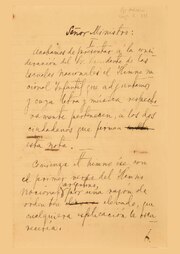 Señor Ministro:
Acabamos de presentar a la con-
sideración del Sr. Presidente de las
escuelas nacionales el Himno na-
cional Infantil que adjuntamos
y cuya letra y música respecti-
vamente pertenecen, a los dos
ciudadanos que firman
esta nota.
Comienza el himno ése con
el primer verso del Himno
Nacional argentino, por una razón de
orden tan elevado, que
cualquiera explicación la oscu-
recería.